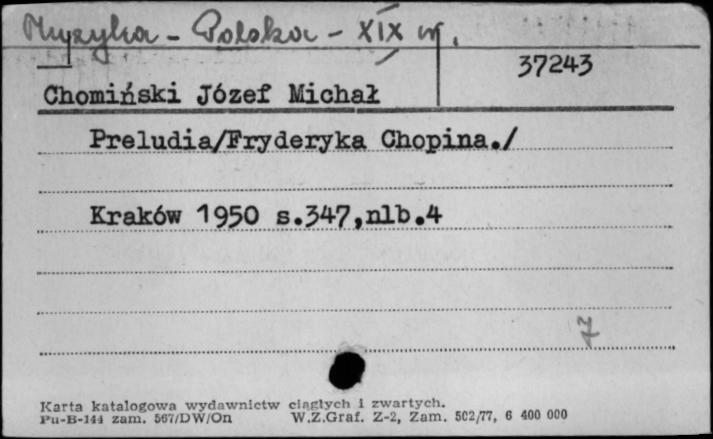 Muzyka - Polska - XIX w.
37243
Chomiński Józef Michał
Preludia/Fryderyka Chopina./
Kraków 1950 s.347,nlb.4
7
Karta katalogowa wydawnictw ciągłych i zwartych.
Pu-B-144 zam. 567/DW/On W.Z.Graf. Z-2, Zam. 502/77, 6 400 000